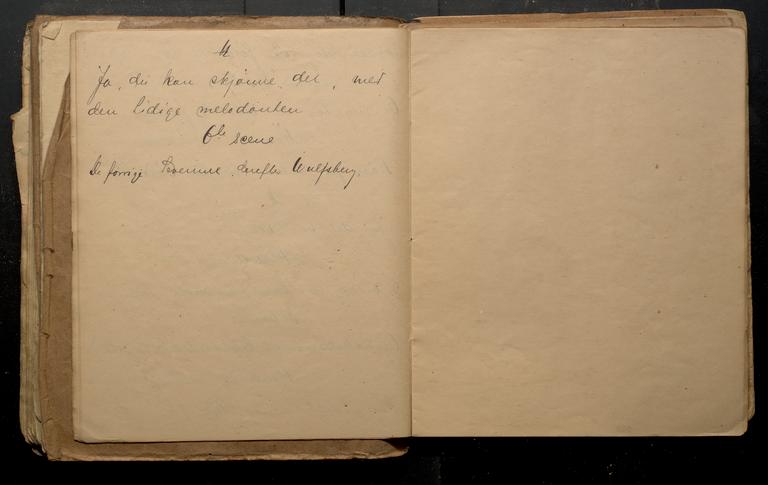 Ja, du kan skjønne det, med
den lidige melodonten
6te scene
De forrige Kvernve, derefter Wulfsberg.